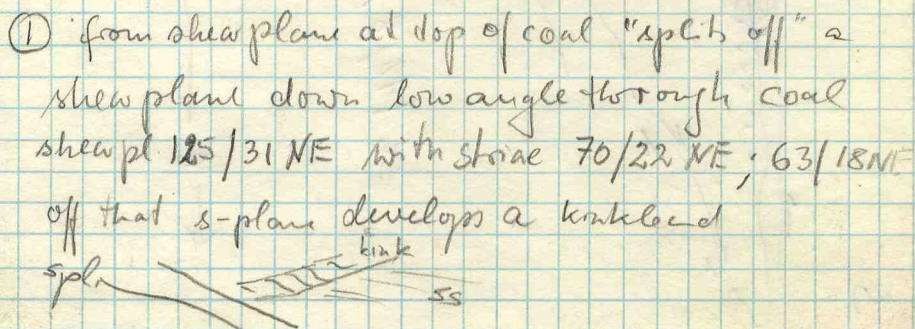 ① from shearplane at top of coal "splits off" a
shearplane down low angle through coal
shearpl 125/31 NE with striae 70/22 NE; 63/18NE
off that s-plane develops a kinkband
kink
spl
ss